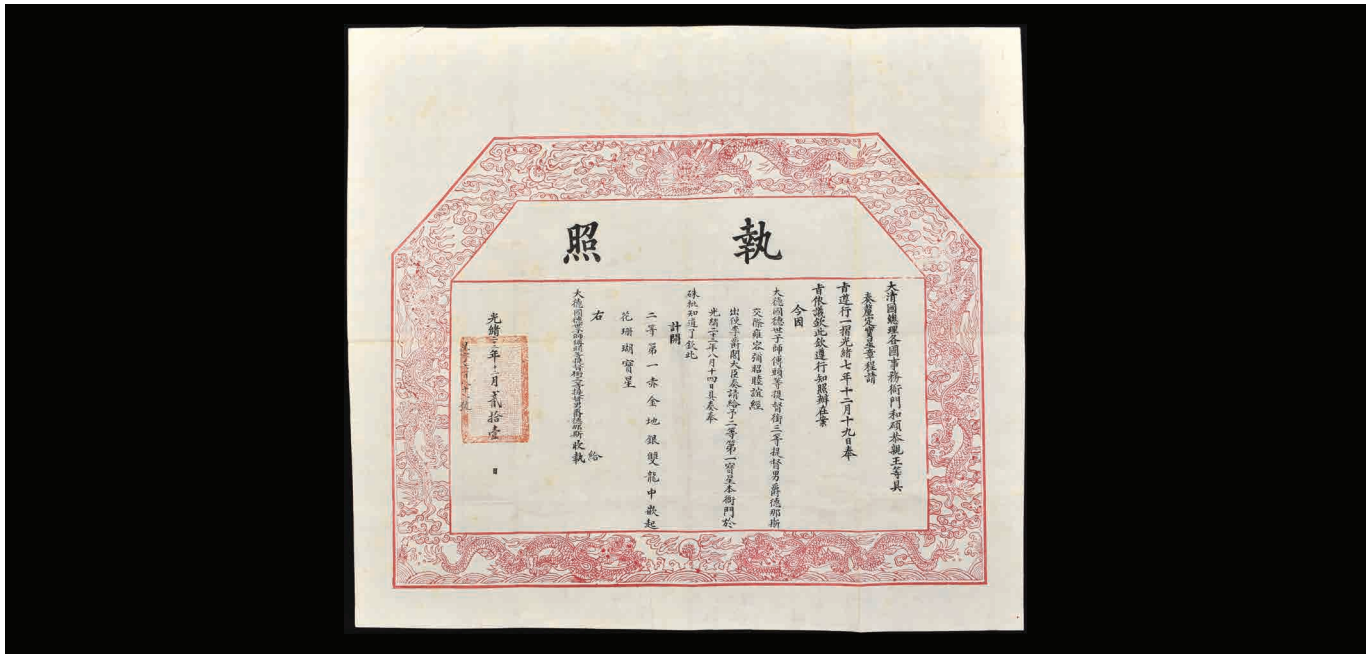 執照
大清國總理各國事務衙門和碩恭親王等具
奏釐定寶星章程請
旨遵行一摺光緒七年十二月十九日奉
旨依議欽此欽遵行知照辦在案
今因
大德國德世子師傅頭等提督銜三等提督男爵德那斯
交際雍容彌昭睦誼經
出使李爵閣大臣奏請給予二等第一寶星本衙門於
光緒二十二年八月十四日具奏奉
硃批知道了欽此
計開
二等第一赤金地銀雙龍中嵌起
花珊瑚寶星
右 給
大德國德世子師傅頭等提督銜三等提督男爵德那斯收執
光緒 年 月貳拾壹 日